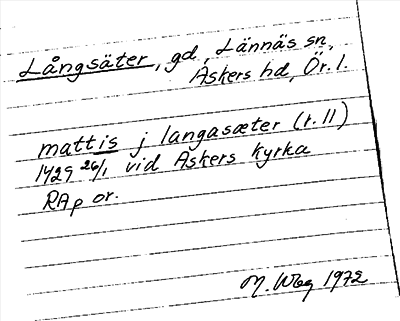 Långsäter, gd, Lännäs sn,
Askers hd, Ör. l.
mattis j langasæter (r. 11)
1429 26/1 vid Askers kyrka
RAp or.
M. Wbg 1972